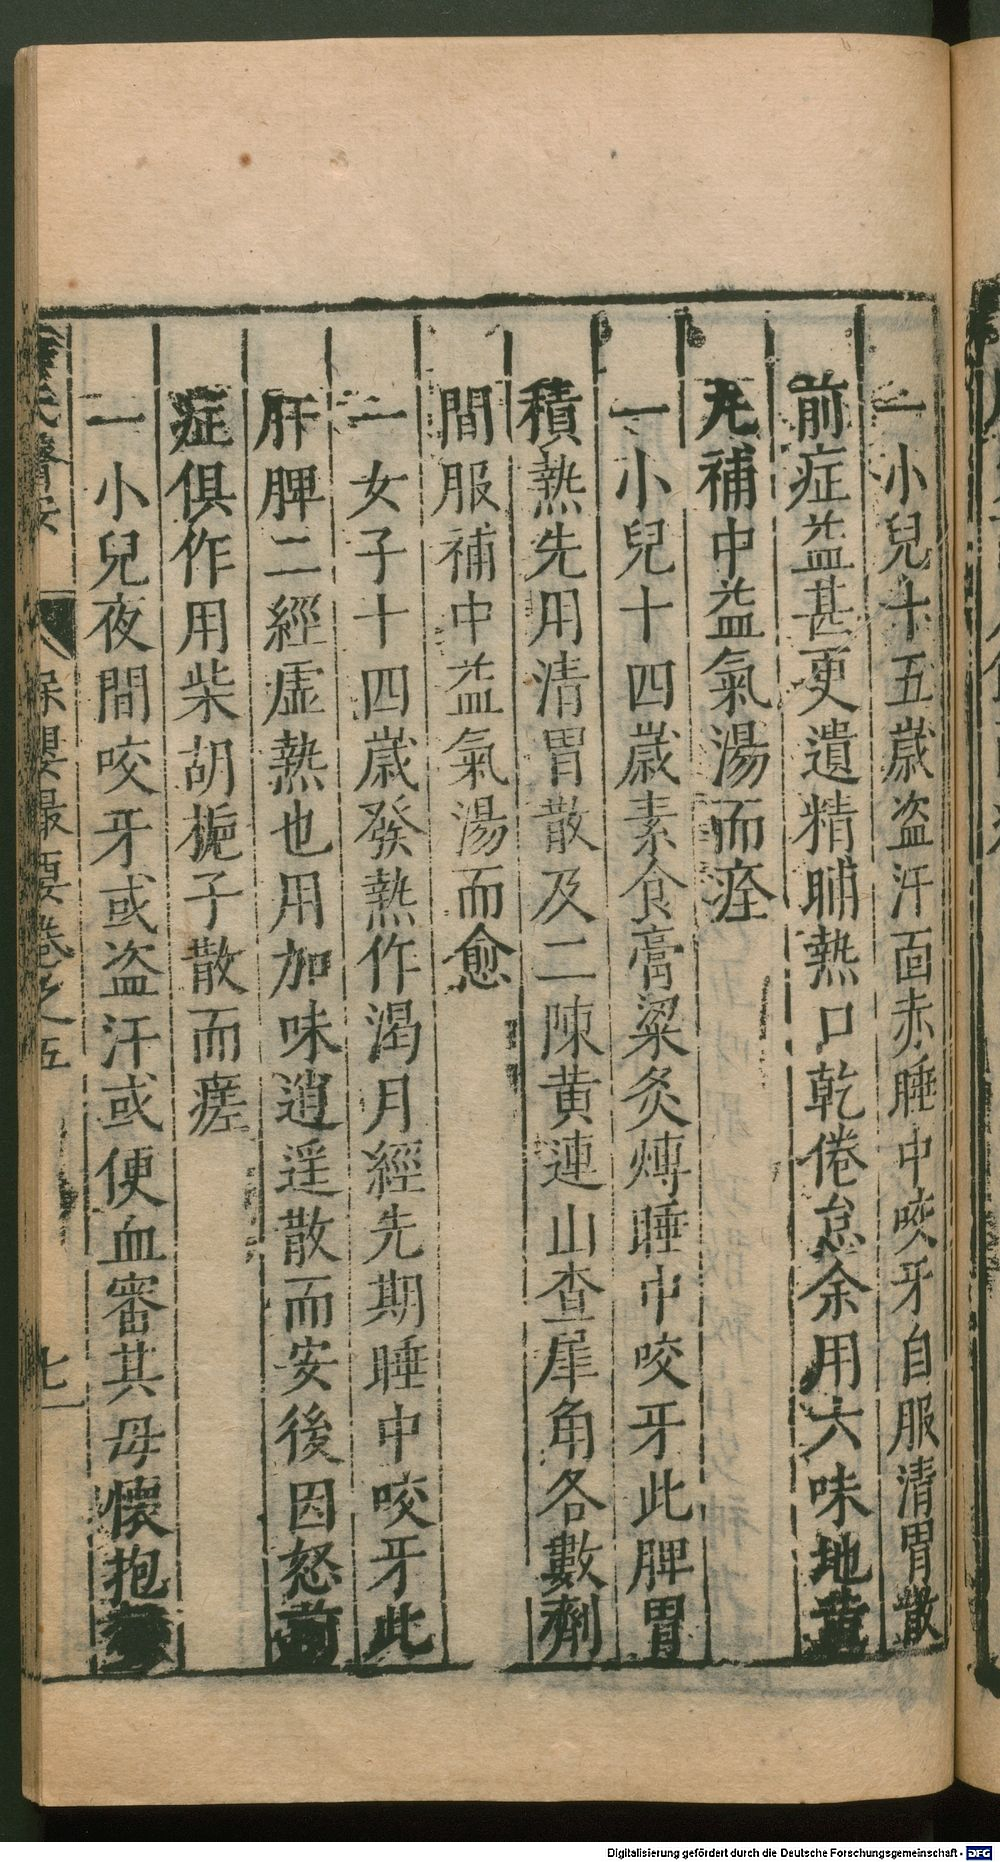 一小兒十五歲盜汗面赤睡中咬牙自服清胃散
前症益甚更遺精晡熱口乾倦怠余用六味地黃
丸補中益氣湯而痊
一小兒十四歲素食膏粱炙煿睡中咬牙此脾胃
積熱先用清胃散及二陳黃連山查犀角各數劑
間服補中益氣湯而愈
一女子十四歲發熱作渴月經先期睡中咬牙此
肝脾二經虛熱也用加味逍遥散而安後因怒前
症俱作用柴胡梔子散而瘥
一小兒夜間咬牙或盜汗或便血審其母懷抱
氏醫案 保嬰撮要卷之五 七
Digitalisierung gefördert durch die Deutsche Forschungsgemeinschaft - DFG